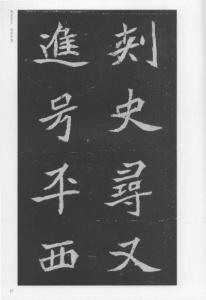 刺史尋又
進号平西